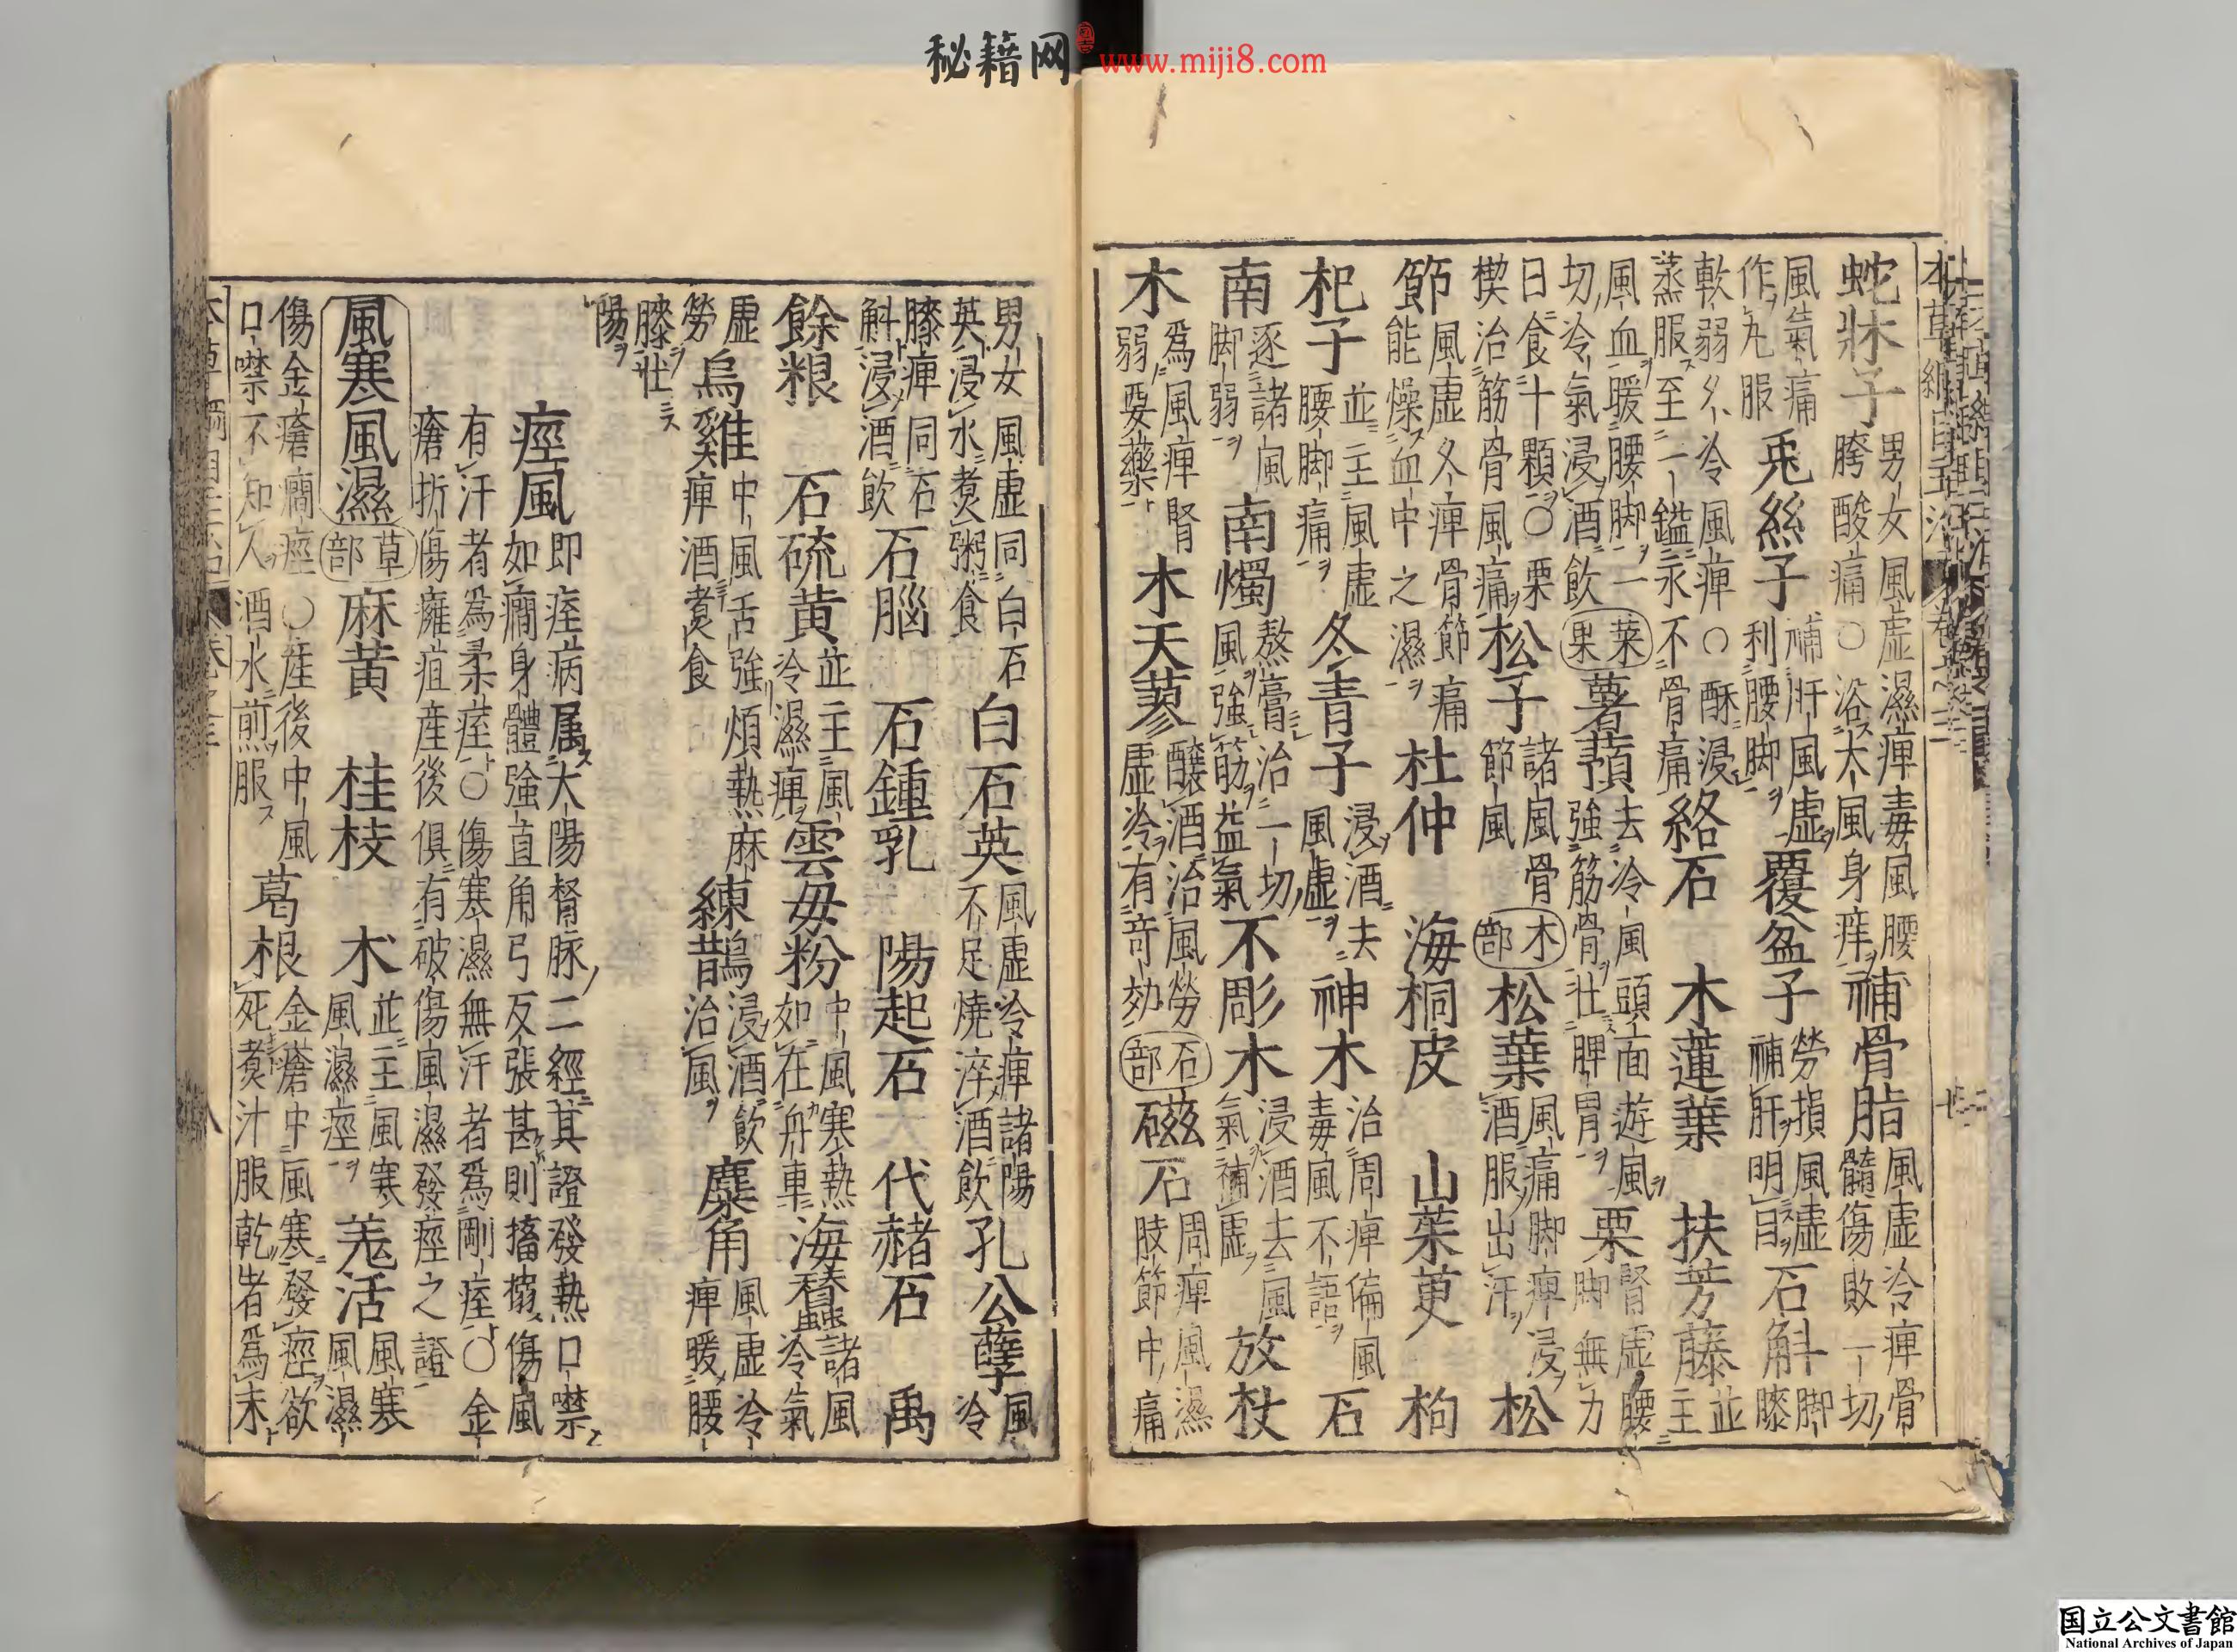 本草綱目主治 卷之三
蛇牀子 男女風虚濕痺毒風腰胯酸痛○浴大風身痒 補骨脂 風虚冷痺骨髓傷敗一切
風氣痛作丸服 兎絲子 補肝風虚利腰脚 覆盆子 勞損風虚補肝明目 石斛 脚膝
軟弱久冷風痺○酥浸蒸服至一鎰永不骨痛 絡石 木蓮葉 扶芳藤 並主
風血暖腰脚一切冷氣浸酒飲 菜果 薯蕷 去冷風頭面遊風強筋骨壯脾胃 栗 腎虚腰脚無力
日食十顆○栗楔治筋骨風痛 松子 諸風骨節風 木部 松葉 風痛脚痺浸酒服出汗 松
節 風虚久痺骨節痛能燥血中之濕 杜仲 海桐皮 山茱萸 枸
杞子 並主風虚腰脚痛 冬青子 浸酒去風虚 神木 治周痺偏風毒風不語 石
南 逐諸風脚弱 南燭 熬膏治一切風強筋益氣 不彫木 浸酒去風氣補虚 放杖
木 爲風痺腎弱要藥 木天蓼 釀酒治風勞虚冷有奇効 石部 磁石 周痺風濕肢節中痛
男女風虚同白石英浸水煑粥食 白石英 風虚冷痺諸陽不足燒淬酒飲 孔公孽 風冷
膝痺同石斛浸酒飲 石腦 石鍾乳 陽起石 代赭石 禹
餘粮 石硫黄 並主風冷濕痺 雲毋粉 中風寒熱如在舟車 海蠶 諸風冷氣
虚勞 烏雞 中風舌強煩熱麻痺酒煑食 練鵲 浸酒飲治風 麋角 風虚冷痺暖腰
膝壯陽
痙風 即痓病属太陽督脉二經其證發熱口噤如癇身體強直角弓反張甚則搐搦傷風
有汗者爲柔痓○傷寒濕無汗者爲剛痓○金瘡折傷癰疽産後俱有破傷風濕發痙之證
風寒風濕 草部 麻黄 桂枝 术 並主風寒風濕痙 羌活 風寒風濕
傷金瘡癇痙○産後中風口噤不知人酒水煎服 葛根 金瘡中風寒發痙欲死煑汁服乾者爲末
本草綱目主治 卷之三 八
秘籍网 www.miji8.com
国立公文書館
National Archives of Japan